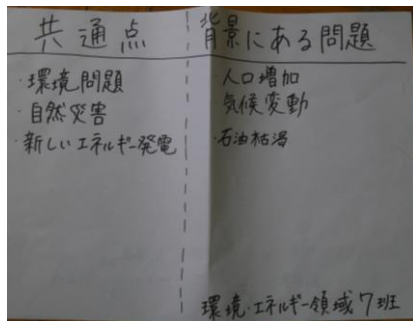 共通点
・環境問題
・自然災害
・新しいエネルギー発電
背景にある問題
・人口増加
気候変動
・石油枯渇
環境・エネルギー領域7班